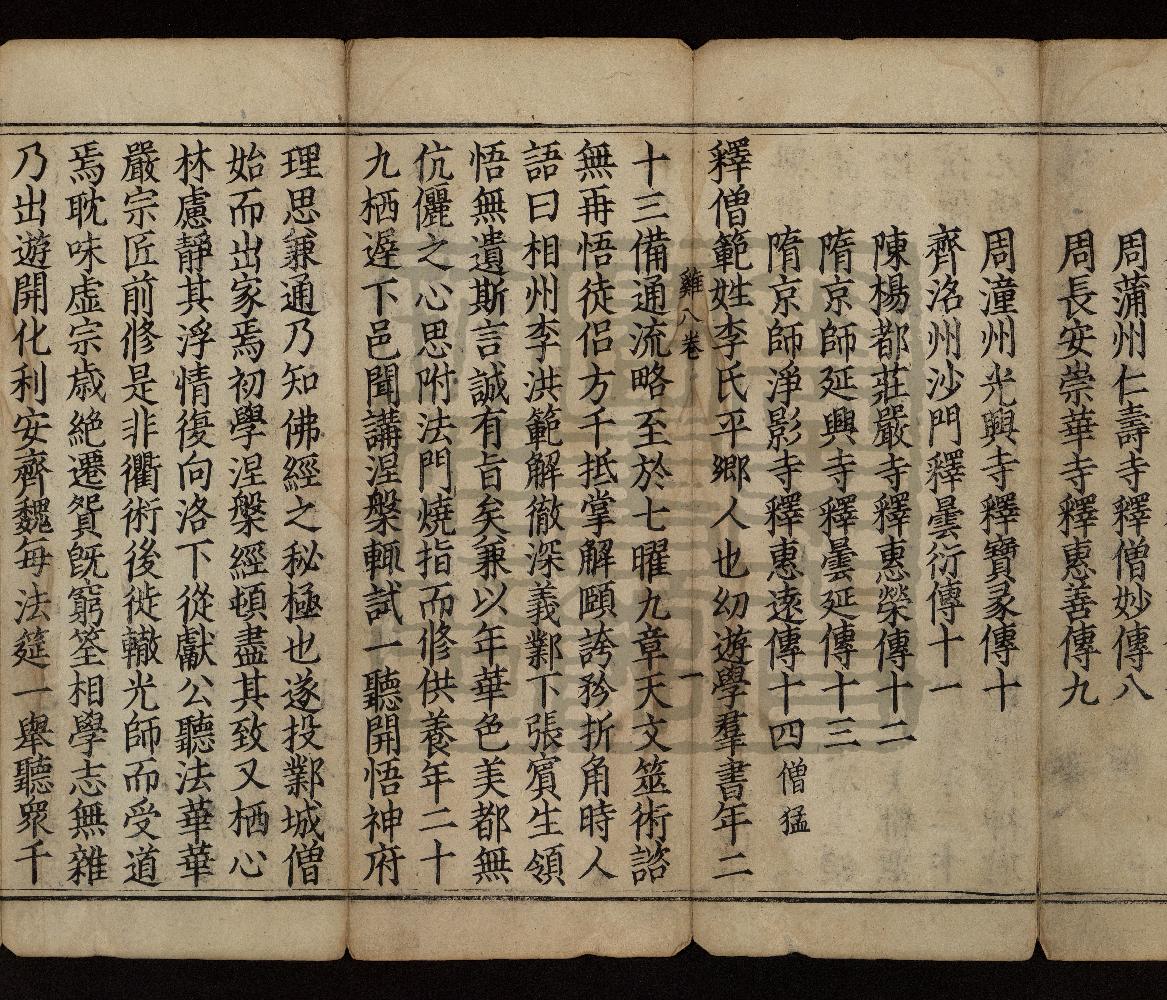 周蒲州仁壽寺釋僧妙傳八
周長安崇華寺釋惠善傳九
周潼州光興寺釋寶彖傳十
齊洛州沙門釋曇衍傳十一
陳楊都莊嚴寺釋惠榮傳十二
隋京師延興寺釋曇延傳十三
隋京師淨影寺釋惠遠傳十四僧猛
釋僧範姓李氏平鄉人也幼遊學羣書年二
雞八卷 一
十三備通流略至於七曜九章天文筮術諮
無再悟徒侣方千抵掌解頤誇矜折角時人
語曰相州李洪範解徹深義鄴下張賓生領
悟無遺斯言誠有旨矣兼以年華色美都無
伉儷之心思附法門燒指而修供養年二十
九栖遟下邑聞講涅槃輒試一聽開悟神府
理思兼通乃知佛經之秘極也遂投鄴城僧
始而出家焉初學涅槃經頓盡其致又栖心
林慮靜其浮情復向洛下從獻公聽法華華
嚴宗匠前修是非衢術後徙轍光師而受道
焉耽味虛宗歲絶遷貿旣窮筌相學志無雜
乃出遊開化利安齊魏每法筵一舉聽衆千